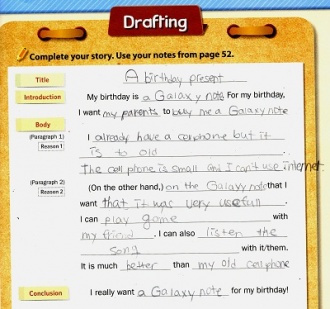 Drafting
Complete your story. Use your notes from page 52.
Title A birthday present
Introduction My birthday is a Galaxy note For my birthday,
I want my parents to buy me a Galaxy note
Body
(Paragraph 1) I already have a cellphone but it
Reason 1 is to old .
The cell phone is small and I can't use internet.
(Paragraph 2) (On the other hand,) on the Galaxy note that I
Reason 2 want that it was very useful .
I can play game with
my friend . I can also listen the
song with it/them.
It is much better than my old cellphone
Conclusion I really want a Galaxy note for my birthday!